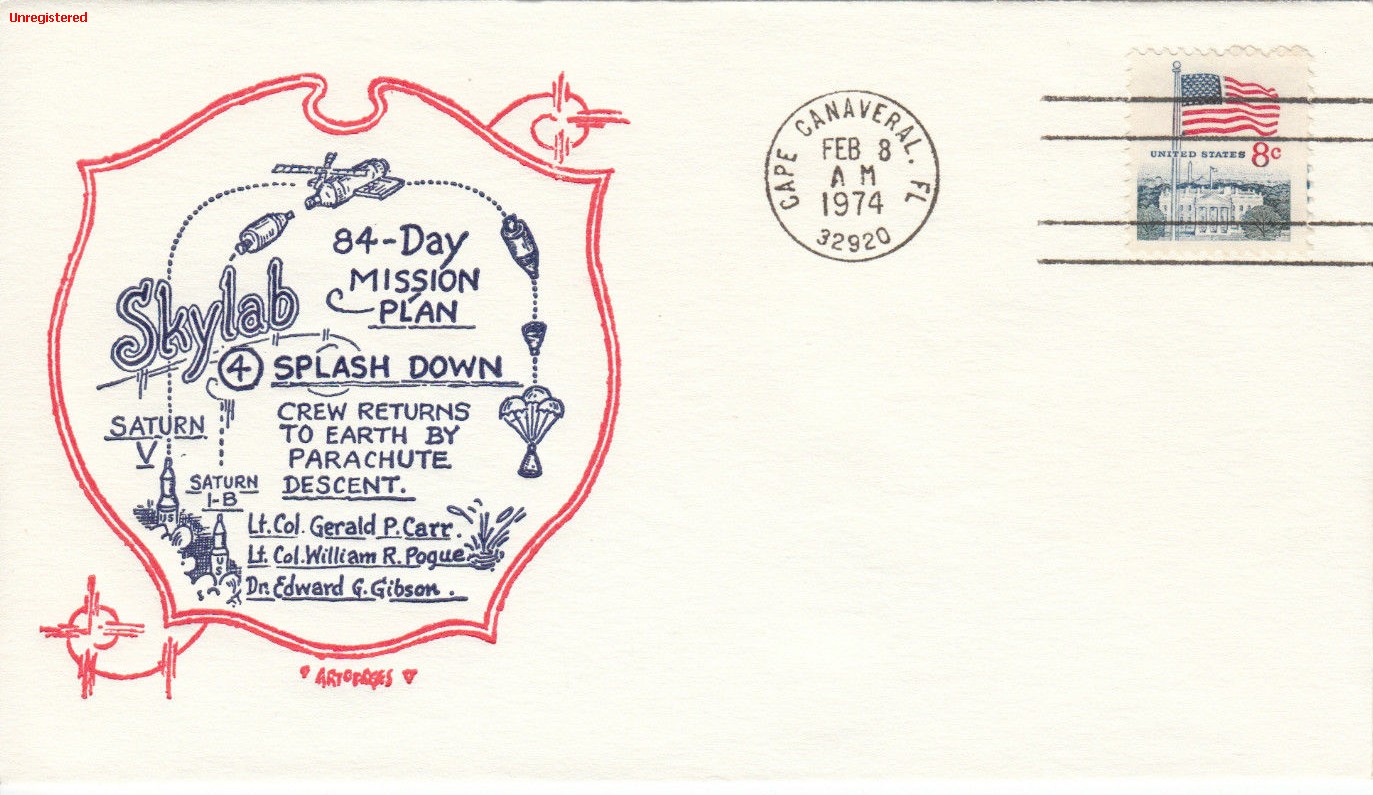 Unregistered
84-Day
MISSION
PLAN
Skylab
4 SPLASH DOWN
CREW RETURNS
TO EARTH BY
PARACHUTE
DESCENT.
SATURN
V
SATURN
I-B
Lt. Col. Gerald P. Carr.
Lt. Col. William R. Pogue
Dr. Edward G. Gibson.
US
US
ARTOPAGES
CAPE CANAVERAL, FL
FEB 8
AM
1974
32920
UNITED STATES 8c